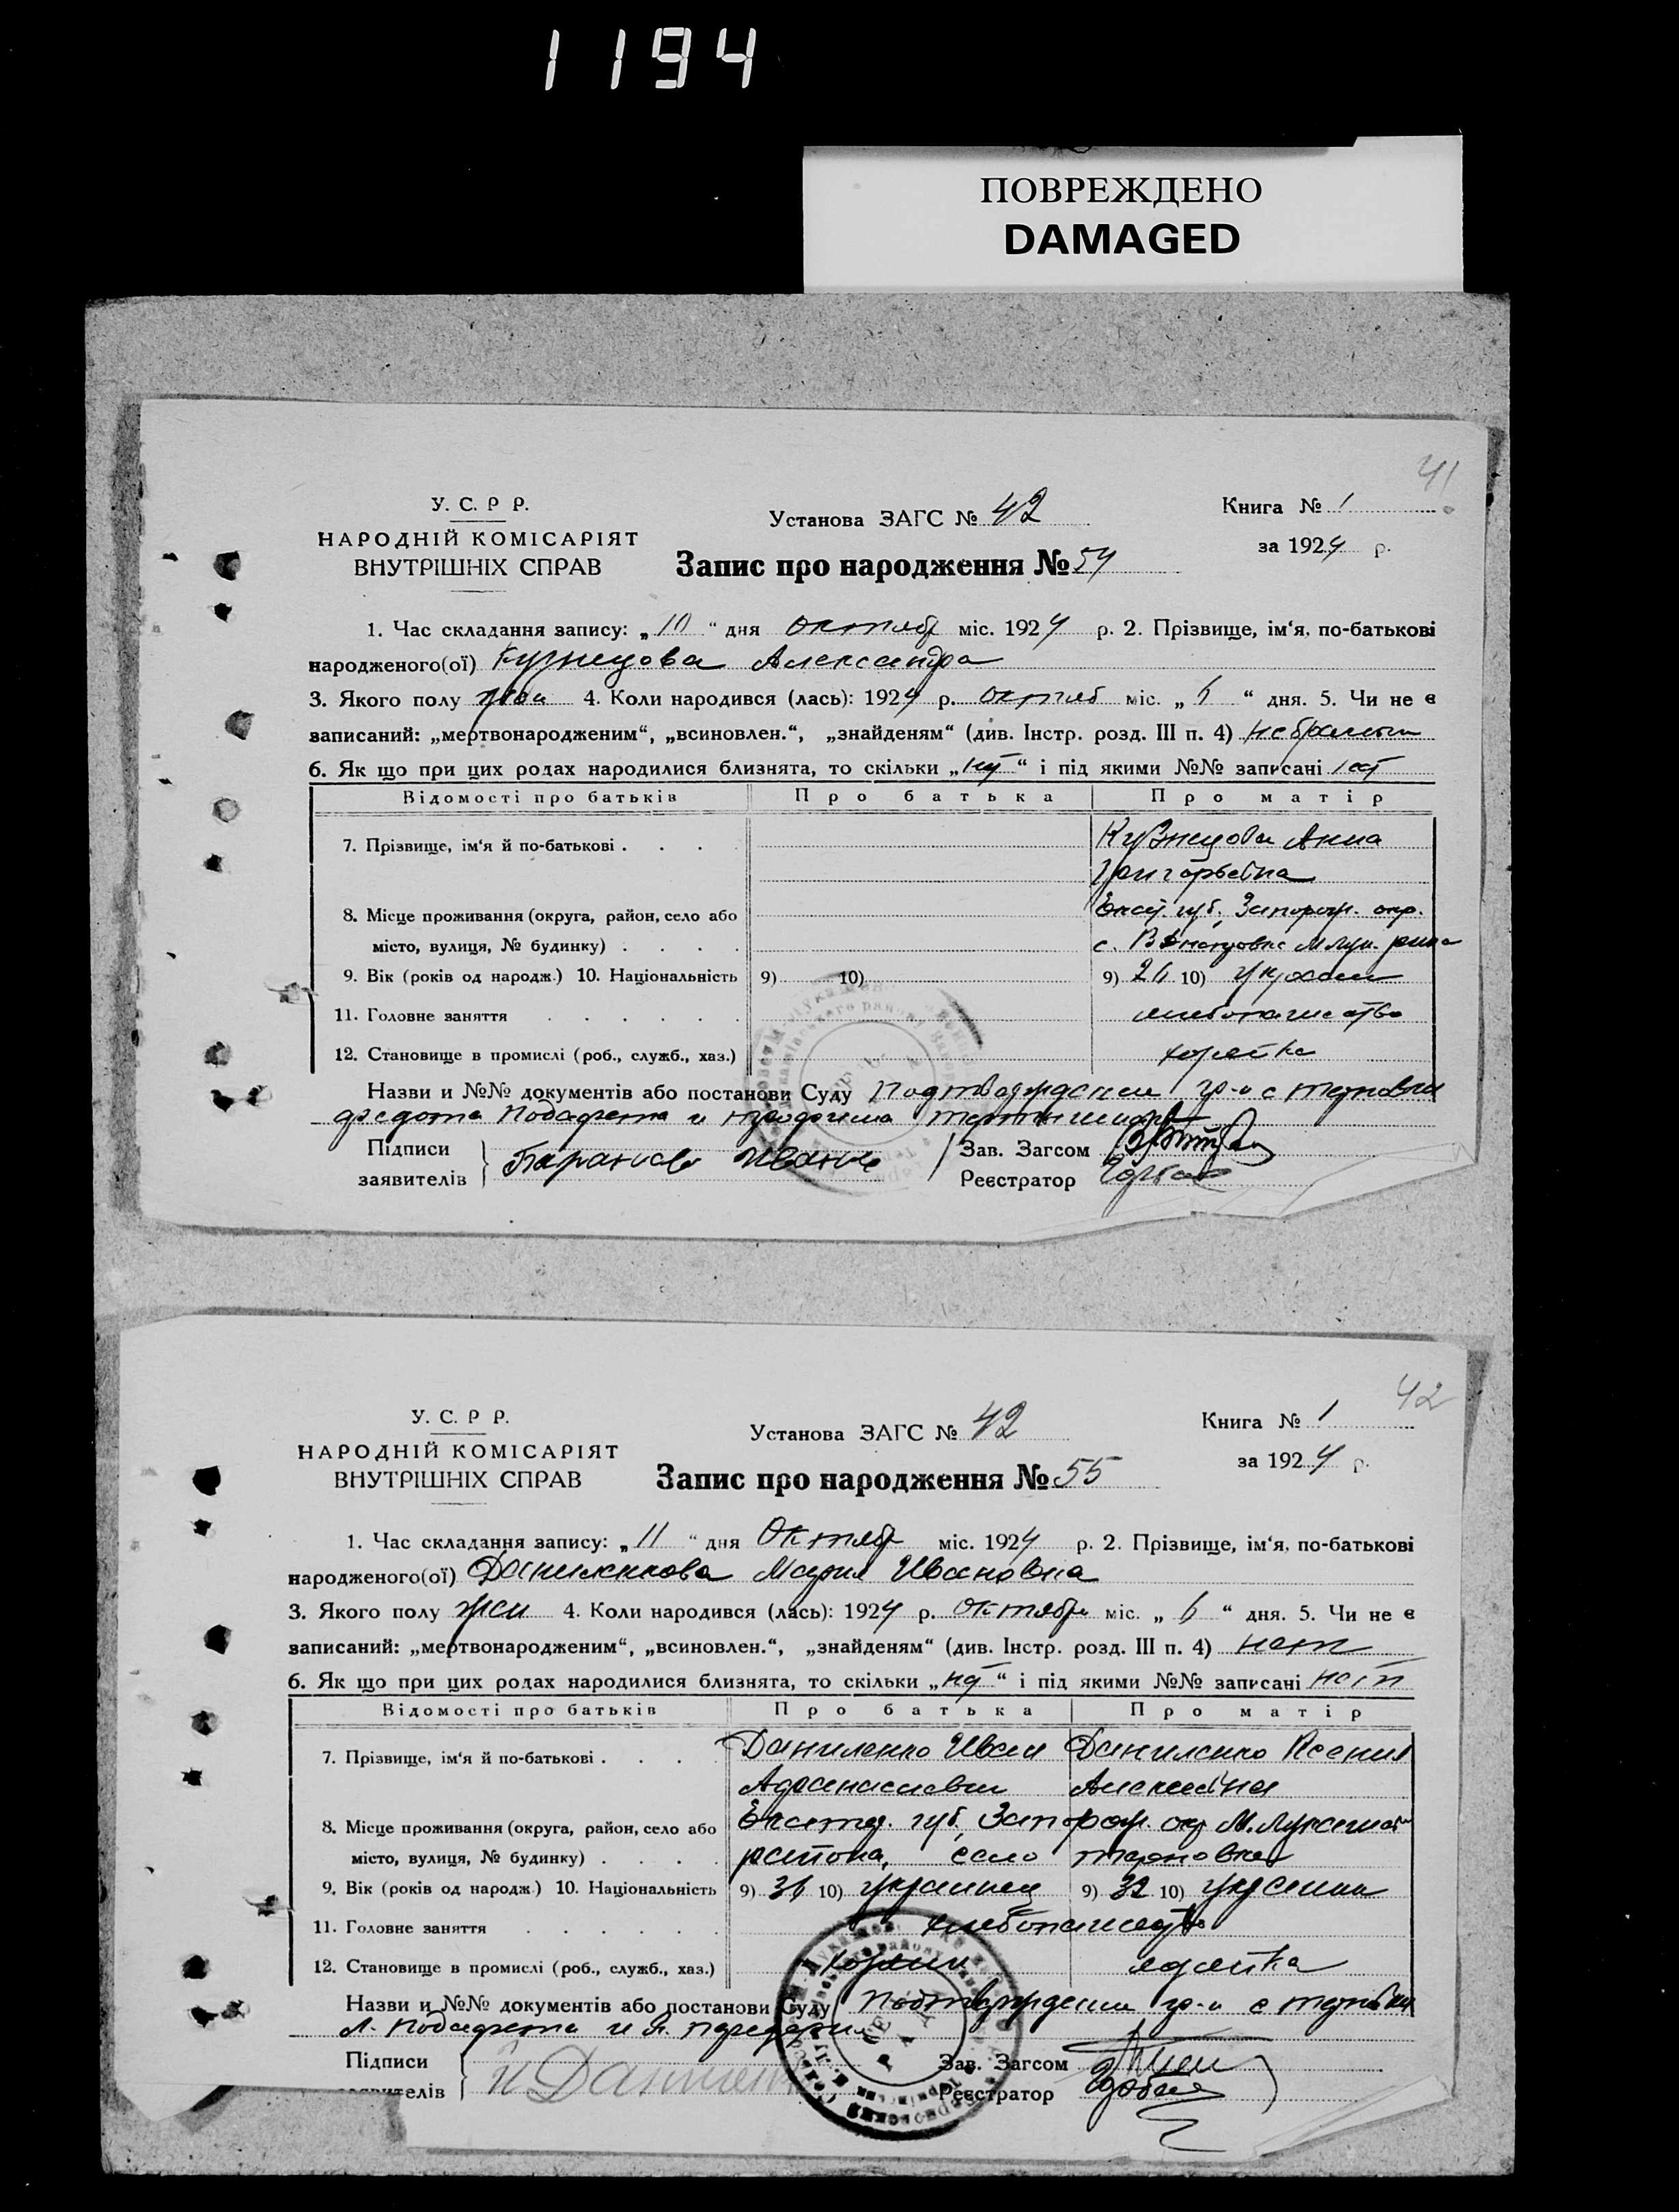 1194
ПОВРЕЖДЕНО
DAMAGED
41
У. С. Р Р.
НАРОДНІЙ КОМІСАРІЯТ
ВНУТРІШНІХ СПРАВ
Установа ЗАГС № 42
Книга № 1
за 1924 р.
Запис про народження № 54
1. Час складання запису: „10“ дня октябр міс. 1924 р. 2. Прізвище, ім‘я, по-батькові
народженого(ої) Кузнецова Александра
3. Якого полу 4. Коли народився (лась): 1924 р. октяб міс. „6“ дня. 5. Чи не є
записаний: „мертвонародженим“, „всиновлен.“, „знайденям“ (див. Інстр. розд. III п. 4)
6. Як що при цих родах народилися близнята, то скільки „нет“ і під якими №№ записані нет
Відомості про батьків Про батька Про матір
7. Прізвище, ім‘я й по-батькові . . . . Кузнецова Анна
Григорьевна
8. Місце проживання (округа, район, село або Екат. губ., Запорож. окр.
місто, вулиця, № будинку) . . . . с.
9. Вік (років од народж.) 10. Національність 9) 10) 9) 26 10)
11. Головне заняття . . . . . . хлебопашество
12. Становище в промислі (роб., служб., хаз.) хозяйка
Назви и №№ документів або постанови Суду Подтверждении гр-н с Терновки
Федота и
Підписи
заявителів
Зав. Загсом
Реєстратор
42
У. С. Р Р.
НАРОДНІЙ КОМІСАРІЯТ
ВНУТРІШНІХ СПРАВ
Установа ЗАГС № 42
Книга № 1
за 1924 р.
Запис про народження № 55
1. Час складання запису: „11“ дня Октябр міс. 1924 р. 2. Прізвище, ім‘я, по-батькові
народженого(ої) Мария Ивановна
3. Якого полу жен 4. Коли народився (лась): 1924 р. октября міс. „6“ дня. 5. Чи не є
записаний: „мертвонародженим“, „всиновлен.“, „знайденям“ (див. Інстр. розд. III п. 4) нет
6. Як що при цих родах народилися близнята, то скільки „нет“ і під якими №№ записані нет
Відомості про батьків Про батька Про матір
7. Прізвище, ім‘я й по-батькові . . . . Даниленко Иван Даниленко Ксения
Афанасиевич Алексеевна
8. Місце проживання (округа, район, село або губ., Запорож. окр. М.
місто, вулиця, № будинку) . . . . района, село Терновка
9. Вік (років од народж.) 10. Національність 9) 36 10) украинец 9) 32 10)
11. Головне заняття . . . . . . хлебопашество
12. Становище в промислі (роб., служб., хаз.) хозяин хозяйка
Назви и №№ документів або постанови Суду Подтверждении гр-н с Терновки
Підписи
заявителів
Зав. Загсом
Реєстратор